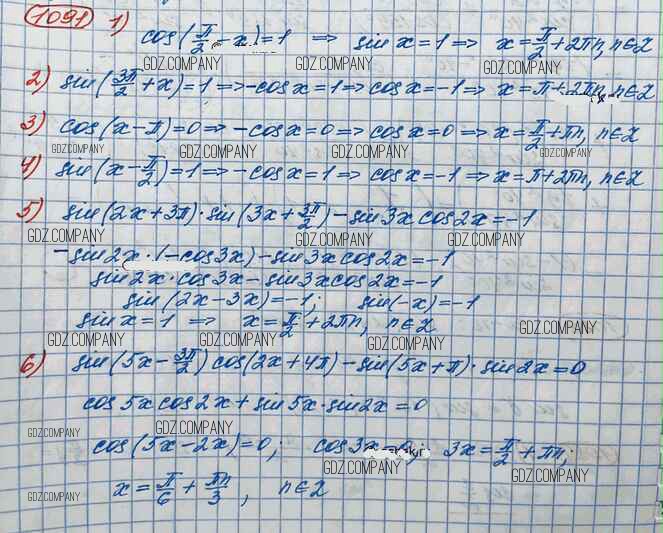 1091 1) cos(π/2 - x) = 1 ⇒ sin x = 1 ⇒ x = π/2 + 2πn, n∈Z
GDZ.COMPANY GDZ.COMPANY GDZ.COMPANY
2) sin(3π/2 + x) = 1 ⇒ -cos x = 1 ⇒ cos x = -1 ⇒ x = π + 2πn, n∈Z
3) cos(x - π) = 0 ⇒ -cos x = 0 ⇒ cos x = 0 ⇒ x = π/2 + πn, n∈Z
GDZ.COMPANY GDZ.COMPANY GDZ.COMPANY GDZ.COMPANY
4) sin(x - π/2) = 1 ⇒ -cos x = 1 ⇒ cos x = -1 ⇒ x = π + 2πn, n∈Z
5) sin(2x + 3π) · sin(3x + 3π/2) - sin 3x cos 2x = -1
GDZ.COMPANY GDZ.COMPANY GDZ.COMPANY GDZ.COMPANY
-sin 2x · (-cos 3x) - sin 3x cos 2x = -1
sin 2x · cos 3x - sin 3x cos 2x = -1
sin(2x - 3x) = -1; sin(-x) = -1
sin x = 1 ⇒ x = π/2 + 2πn, n∈Z
GDZ.COMPANY GDZ.COMPANY GDZ.COMPANY GDZ.COMPANY
6) sin(5x - 3π/2) cos(2x + 4π) - sin(5x + π) · sin 2x = 0
cos 5x cos 2x + sin 5x · sin 2x = 0
GDZ.COMPANY GDZ.COMPANY
cos(5x - 2x) = 0; cos 3x = 0; 3x = π/2 + πn;
GDZ.COMPANY GDZ.COMPANY
x = π/6 + πn/3, n∈Z
GDZ.COMPANY